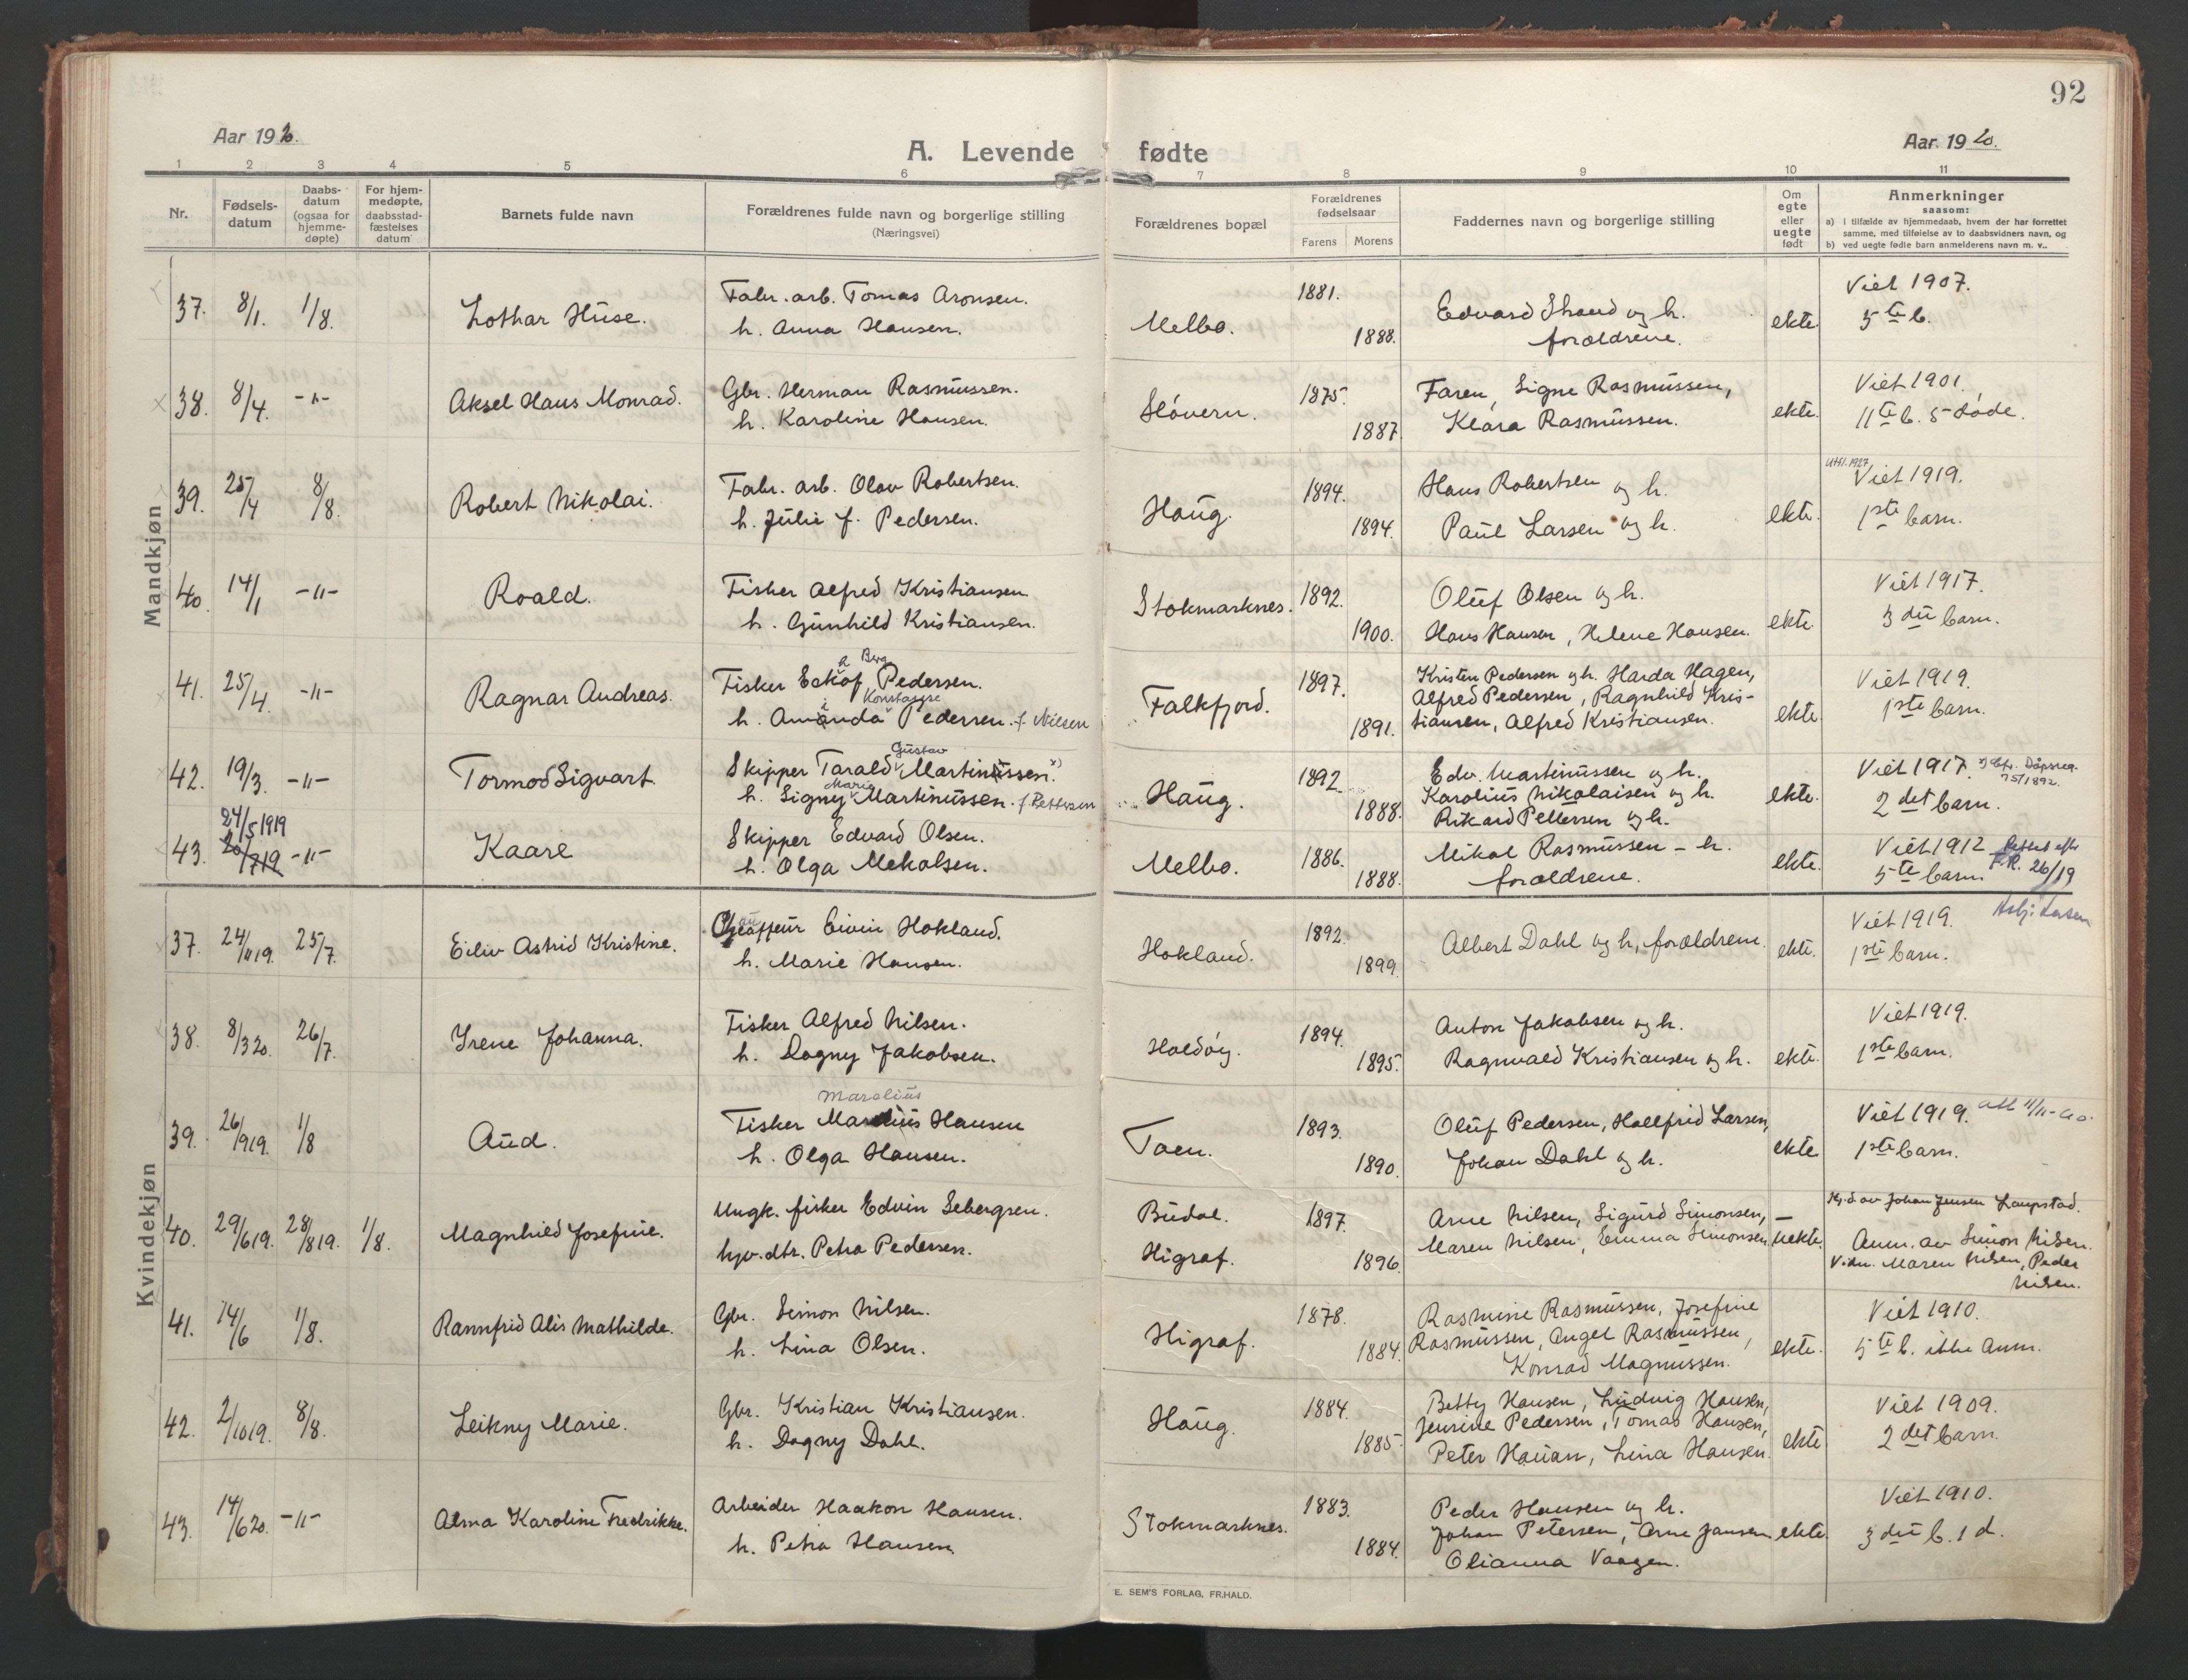 92
Aar 1920.
A. Levende fødte
Aar 1920.
1 2 3 4 5 6 7 8 9 10 11
Nr.
Fødselsdatum
Daabsdatum (ogsaa for hjemmedøpte)
For hjemmedøpte, daabsstadfæstelses datum
Barnets fulde navn
Forældrenes fulde navn og borgerlige stilling
(Næringsvei)
Forældrenes bopæl
Forældrenes fødselsaar
Farens Morens
Faddernes navn og borgerlige stilling
Om egte eller uegte født
Anmerkninger
saasom:
a) i tilfælde av hjemmedaab, hvem der har forrettet
samme, med tilføielse av to daabsvidners navn, og
b) ved uegte fødte barn anmelderens navn m. v..
Mandkjøn
37. 8/1. 1/8. Lothar Huse. Fabr. arb. Tomas Aronsen. Melbo. 1881. Edvard Strand og h. ekte. Viet 1907.
h. Anna Hansen. 1888. forældrene. 5te b.
38. 8/4. -"- Aksel Hans Monrad. Gbr. Herman Rasmussen. 1875. Faren, Signe Rasmussen, ekte. Viet 1901.
h. Karoline Hansen. 1887. Klara Rasmussen. 11te b. 5 døde.
39. 25/4 8/8. Robert Nikolai. Fabr. arb. Olav Robertsen. Haug. 1894. Hans Robertsen og h. ekte. Utfl. 1927 Viet 1919.
h. Julie f. Pedersen. 1894. Paul Larsen og h. 1ste barn.
40. 14/1 -"- Roald. Fisker Alfred Kristiansen Stokmarknes. 1892. Oluf Olsen og h. ekte. Viet 1917.
h. Gunhild Kristiansen. 1900. Hans Hansen, Helene Hansen. 3die barn.
41. 25/4. -"- Ragnar Andreas. Fisker Eckhof Berg Pedersen. Falkfjord. 1897. Kristen Pedersen og h. Harda Hagen, ekte. Viet 1919.
Alfred Pedersen, Ragnhild Kris-
h. Amanda Konstanse Pedersen f. Nilsen 1891. tiansen, Alfred Kristiansen. 1ste barn.
42. 19/3. -"- Tormod Sigvart. Skipper Tarald Gustav Martinussen. x) Haug. 1892. Edv. Martinussen og h. ekte. Viet 1917. Dåpsreg. 75/1892.
h. Signy Marie Martinussen. f. Pettersen 1888. Karolius Nikolaisen og h. 2det barn.
Rikard Pettersen og h.
43. 24/5 1919 20/7 19 -"- Kaare Skipper Edvard Olsen. Melbo. 1886. Mikal Rasmussen - h. ekte. Viet 1912 Rettet efter
h. Olga Meholsen. 1888. forældrene. 5te barn F.R. 26/19
Asbj. Larsen
Kvindekjøn
37. 24/11 19. 25/7. Eiliv Astrid Kristine. Chauffeur Eivin Hokland. Hokland. 1892. Albert Dahl og h, forældrene. ekte. Viet 1919.
h. Marie Hansen. 1899. 1ste barn.
38. 8/3 20. 26/7. Irene Johanna. Fisker Alfred Nilsen. 1894. Anton Jakobsen og h. ekte. Viet 1919.
h. Dagny Jakobsen. 1895. Ragnvald Kristiansen og h. 1ste barn.
39. 26/9 19. 1/8 Aud. Maralius
Fisker Maralius Hansen Taen. 1893. Oluf Pedersen, Hallfrid Larsen, ekte Viet 1919. att 11/11-40.
h. Olga Hansen. 1890. Johan Dahl og h. 1ste barn.
40. 29/6 19. 28/8 19. 1/8. Magnhild Josefine. Ungk. fisker Edvin Sebergsen. Budal. 1897. Arne Nilsen, Sigurd Simonsen, uekte. Kj. d av Johan Jensen Laupstad.
hjv. dtr. Petra Pedersen. Higraf. 1896. Maren Nilsen, Emma Simonsen Anm. av Simon Nilsen.
Vidn. Maren Nilsen, Peder
Nilsen.
41. 14/6 1/8. Rannfrid Alis Mathilde. Gbr. Simon Nilsen. Higraf. 1878. Rasmine Rasmussen, Josefine ekte. Viet 1910.
h. Lina Olsen. 1884. Rasmussen, Angel Rasmussen, 5te b. ikke anm.
Konrad Magnussen.
42. 2/10 19. 8/8. Leikny Marie. Gbr. Kristian Kristiansen. Haug. 1884. Betty Hansen, Ludvig Hansen, ekte Viet 1909.
h. Dagny Dahl. 1885. Jensine Pedersen, Tomas Hansen, 2det barn.
Peter Hauan, Lina Hansen.
43. 14/6 20. -"- Alma Karoline Fredrikke. Arbeider Haakon Hansen. Stokmarknes. 1883. Peder Hansen og h. ekte. Viet 1910.
h. Petra Hansen 1884. Johan Petersen, Arne Jansen 3die b. 1 d.
Olianna Vaagen.
E. SEM'S FORLAG, FR.HALD.